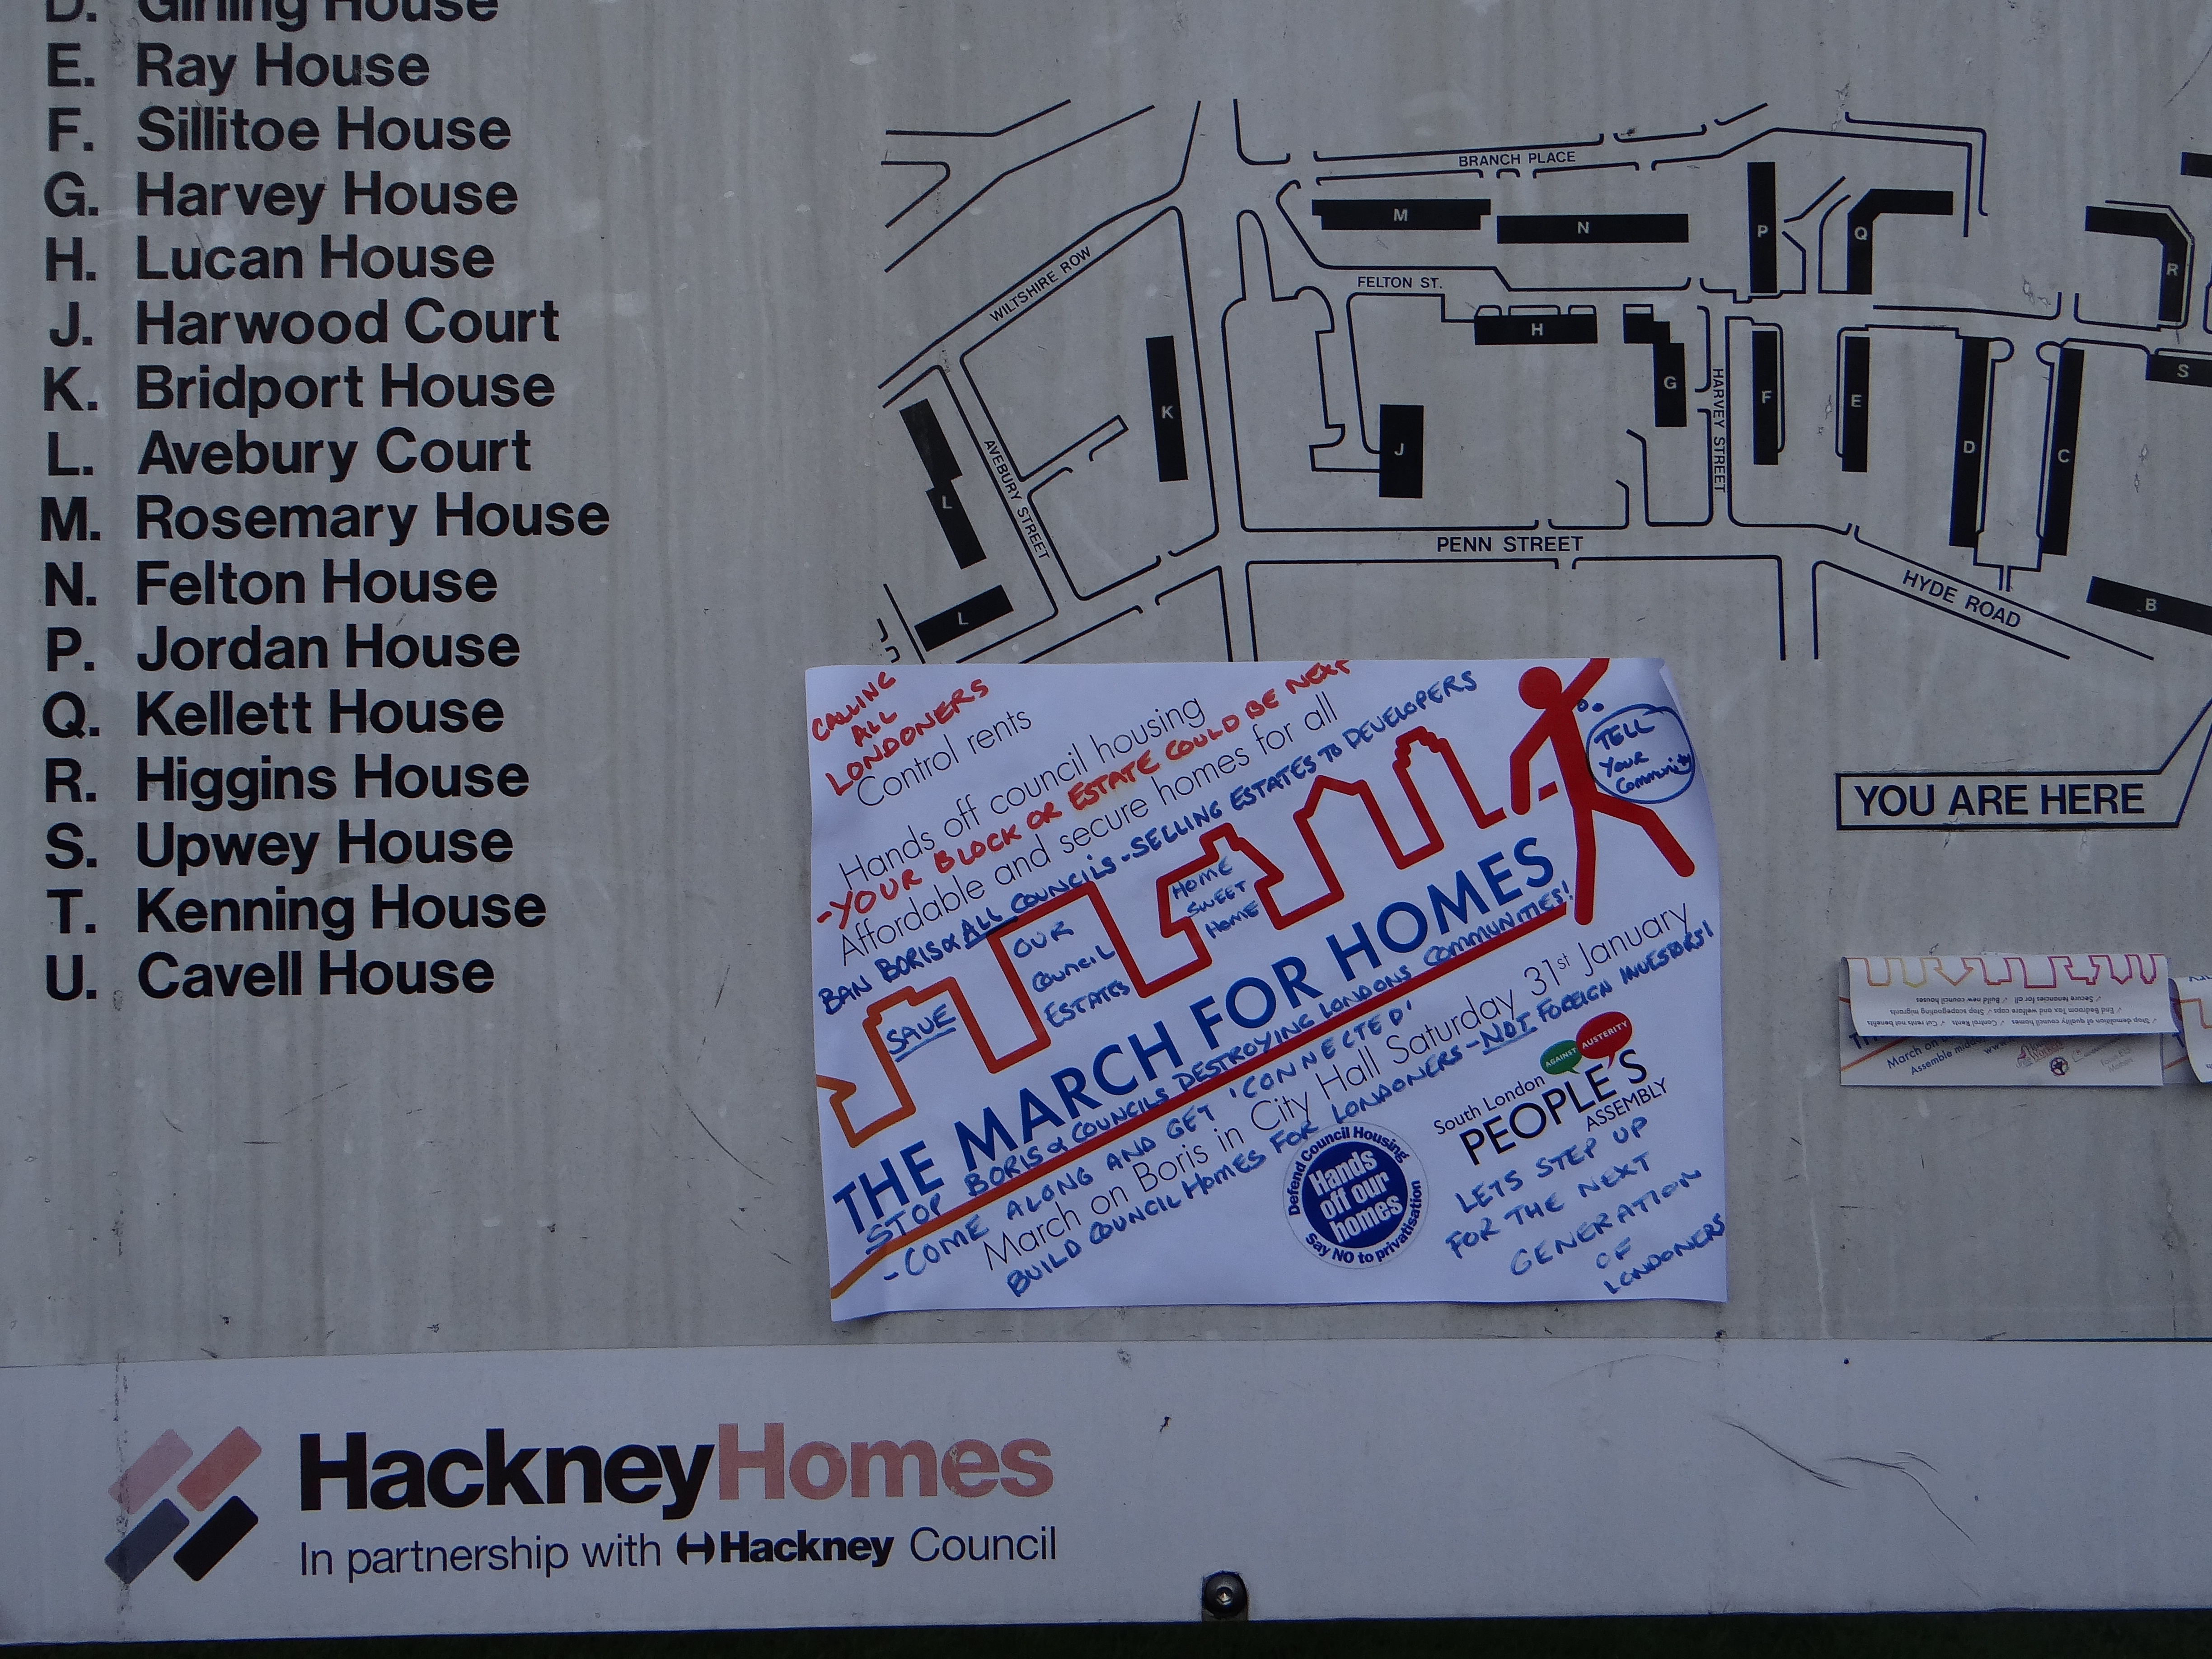 D. Girling House
E. Ray House
F. Sillitoe House
G. Harvey House
H. Lucan House
J. Harwood Court
K. Bridport House
L. Avebury Court
M. Rosemary House
N. Felton House
P. Jordan House
Q. Kellett House
R. Higgins House
S. Upwey House
T. Kenning House
U. Cavell House
BRANCH PLACE
M
N
P
Q
R
WILTSHIRE ROW
FELTON ST.
H
G
HARVEY STREET
F
E
D
C
S
K
J
L
AVEBURY STREET
L
PENN STREET
HYDE ROAD
B
YOU ARE HERE
CALLING
ALL
LONDONERS
Control rents
Hands off council housing
-YOUR BLOCK OR ESTATE COULD BE NEXT
Affordable and secure homes for all
BAN BORIS & ALL COUNCILS - SELLING ESTATES TO DEVELOPERS
TELL
YOUR
Community
SAVE
OUR
COUNCIL
ESTATES
HOME
SWEET
HOME
THE MARCH FOR HOMES
STOP BORIS & COUNCILS DESTROYING LONDONS COMMUNITIES!
- COME ALONG AND GET 'CONNECTED'
March on Boris in City Hall Saturday 31st January
BUILD COUNCIL HOMES FOR LONDONERS - NOT FOREIGN INVESTORS!
Defend Council Housing
Hands
off our
homes
Say NO to privatisation
AGAINST AUSTERITY
South London
PEOPLE'S
ASSEMBLY
LETS STEP UP
FOR THE NEXT
GENERATION
OF
LONDONERS
✓ Stop demolition of quality council homes ✓ Control Rents ✓ Cut rents not benefits
✓ End Bedroom Tax and welfare caps ✓ Stop scapegoating migrants
✓ Secure tenancies for all ✓ Build new council houses
March on
Assemble
HackneyHomes
In partnership with Hackney Council